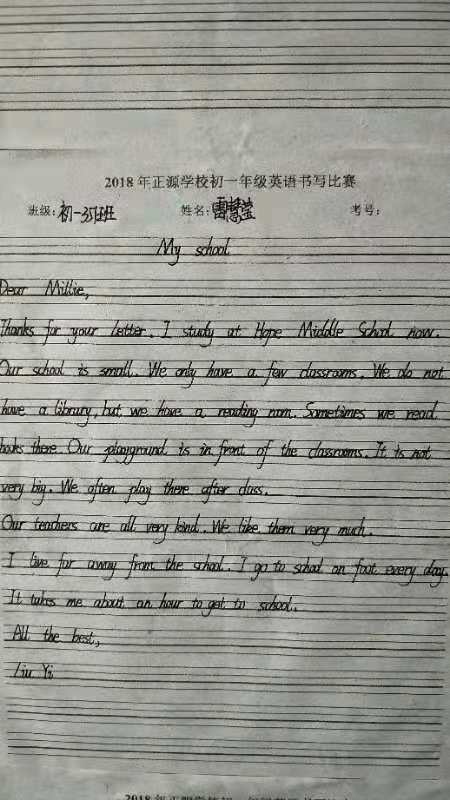 2018年正源学校初一年级英语书写比赛
班级:初一35班 姓名:雷慧莹 考号:
My school
Dear Millie,
Thanks for your letter. I study at Hope Middle School now.
Our school is small. We only have a few classrooms. We do not
have a library, but we have a reading room. Sometimes we read
books there. Our playground is in front of the classrooms. It is not
very big. We often play there after class.
Our teachers are all very kind. We like them very much.
I live far away from the school. I go to school on foot every day.
It takes me about an hour to get to school.
All the best,
Liu Yi